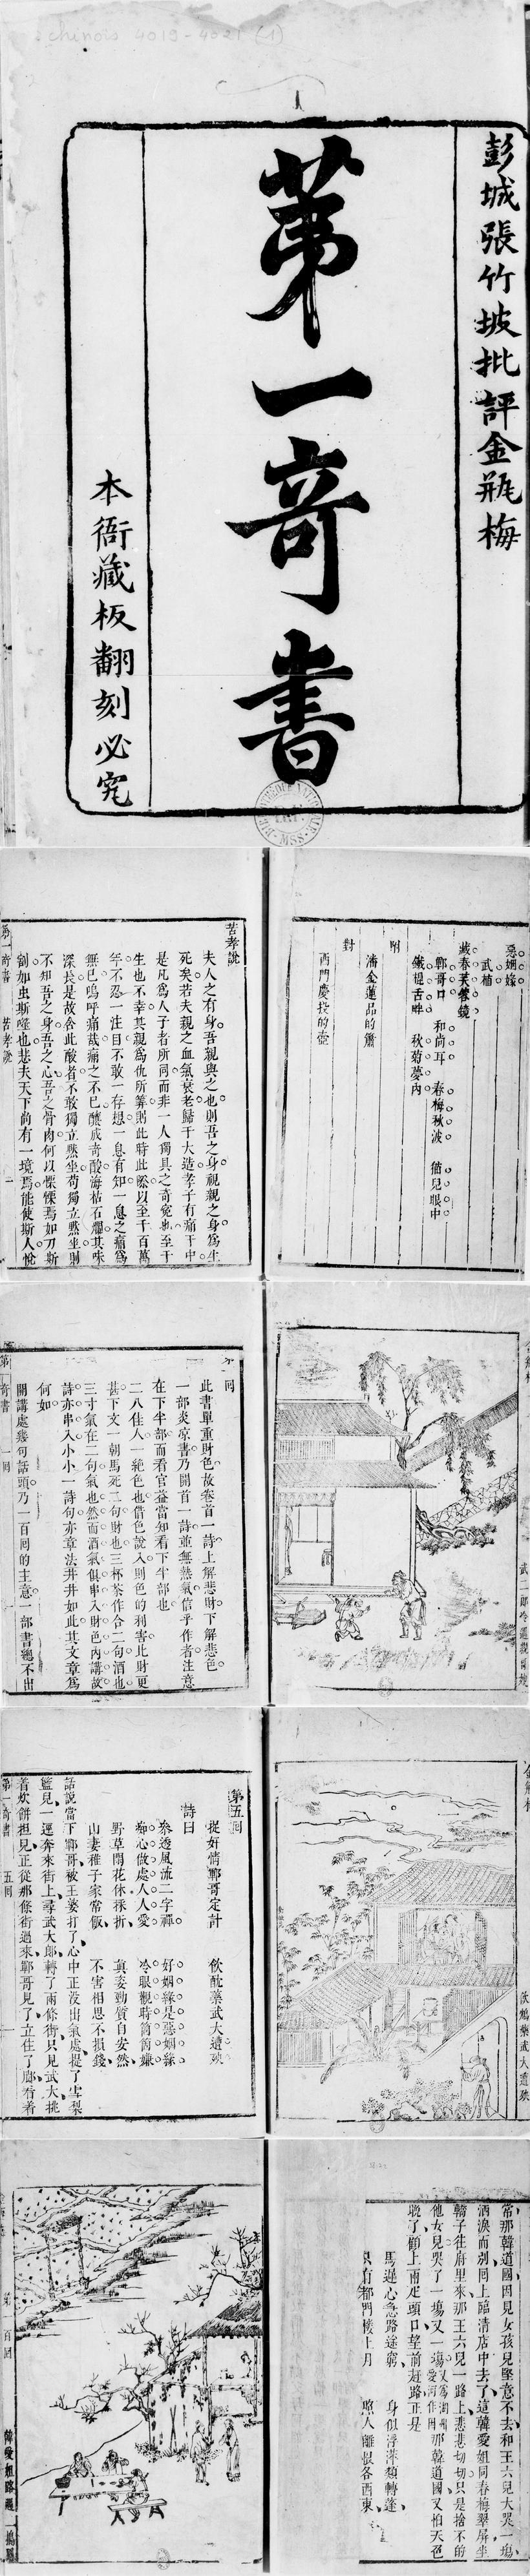 chinois 4019-4021 (1)
彭城張竹坡批評金瓶梅
第一奇書
本衙藏板翻刻必究
惡姻緣
武植
藏春芙蓉鏡
鄆哥口 和尚耳 春梅秋波 猫兒眼中
鐵棍舌畔 秋菊夢內
附
潘金蓮品的簫
對
西門慶投的壺
苦孝說
夫人之有身吾親與之也則吾之身視親之身爲生
死矣若夫親之血氣衰老歸于大造孝子有痛于中
是凡爲人子者所同而非一人獨具之奇寃也至于
生也不幸其親爲仇所算則此時此際以至千百萬
年不忍一注目不敢一存想一息有知一息之痛爲
無已嗚呼痛哉痛之不已釀成奇酸海枯石爛其味
深長是故含此酸者不敢獨立默坐苟獨立默坐則
不知吾之身吾之心吾之骨肉何以慄慄焉如刀斯
割如虫斯噬也悲夫天下尚有一境焉能使斯人悅
第一奇書 苦孝說 一
此書單重財色故卷首一詩上解悲財下解悲色
一部炎凉書乃開首一詩並無熱氣信乎作者注意
在下半部而看官益當知看下半部也
二八佳人一絶色也借色說入則色的利害比財更
甚下文一朝馬死二句財也三杯茶作合二句酒也
三寸氣在二句氣也然而酒氣俱串入財色內講故
詩亦串入小小一詩句亦章法井井如此其文章爲
何如
開講處幾句話頭乃一百回的主意一部書總不出
第一奇書 一回
第五回
捉奸情鄆哥定計 飲酖藥武大遭殃
詩曰
參透風流二字禪 好姻緣是惡姻緣
痴心做處人人愛 冷眼觀時箇箇嫌
野草閒花休採折 真姿勁質自安然
山妻稚子家常飯 不害相思不損錢
話說當下鄆哥被王婆打了心中正没出氣處提了雪梨
籃兒一逕奔來街上尋武大郎轉了兩條街只見武大挑
着炊餅担兒正從那條街過來鄆哥見了立住了脚看着
第一奇書 五回
飲鴆藥武大遭殃
常那韓道國因見女孩兒堅意不去和王六兒大哭一塲
洒淚而別回上臨清店中去了這韓愛姐同春梅翠屏坐
轎子往府里來那王六兒一路上悲悲切切只是捨不的
他女兒哭了一塲又一塲那韓道國又怕天色
晚了顧上兩疋頭口望前赶路正是
馬遲心急路途窮 身似浮萍類轉蓬
只有都門樓上月 照人離恨各西東
第一百回